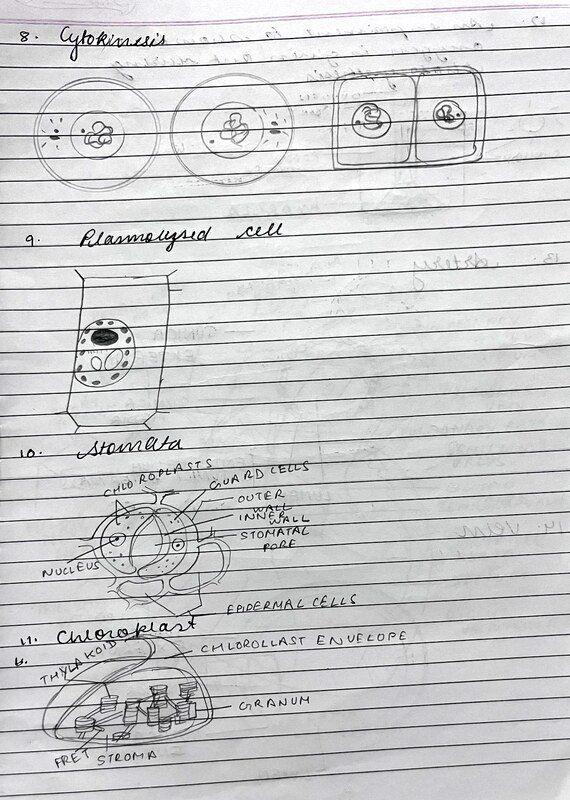 8. Cytokinesis
9. Plasmolysed cell
10. Stomata
CHLOROPLASTS
GUARD CELLS
OUTER WALL
INNER WALL
STOMATAL PORE
NUCLEUS
EPIDERMAL CELLS
11. Chloroplast
THYLAKOID
CHLOROLLAST ENVELOPE
GRANUM
FRET
STROMA